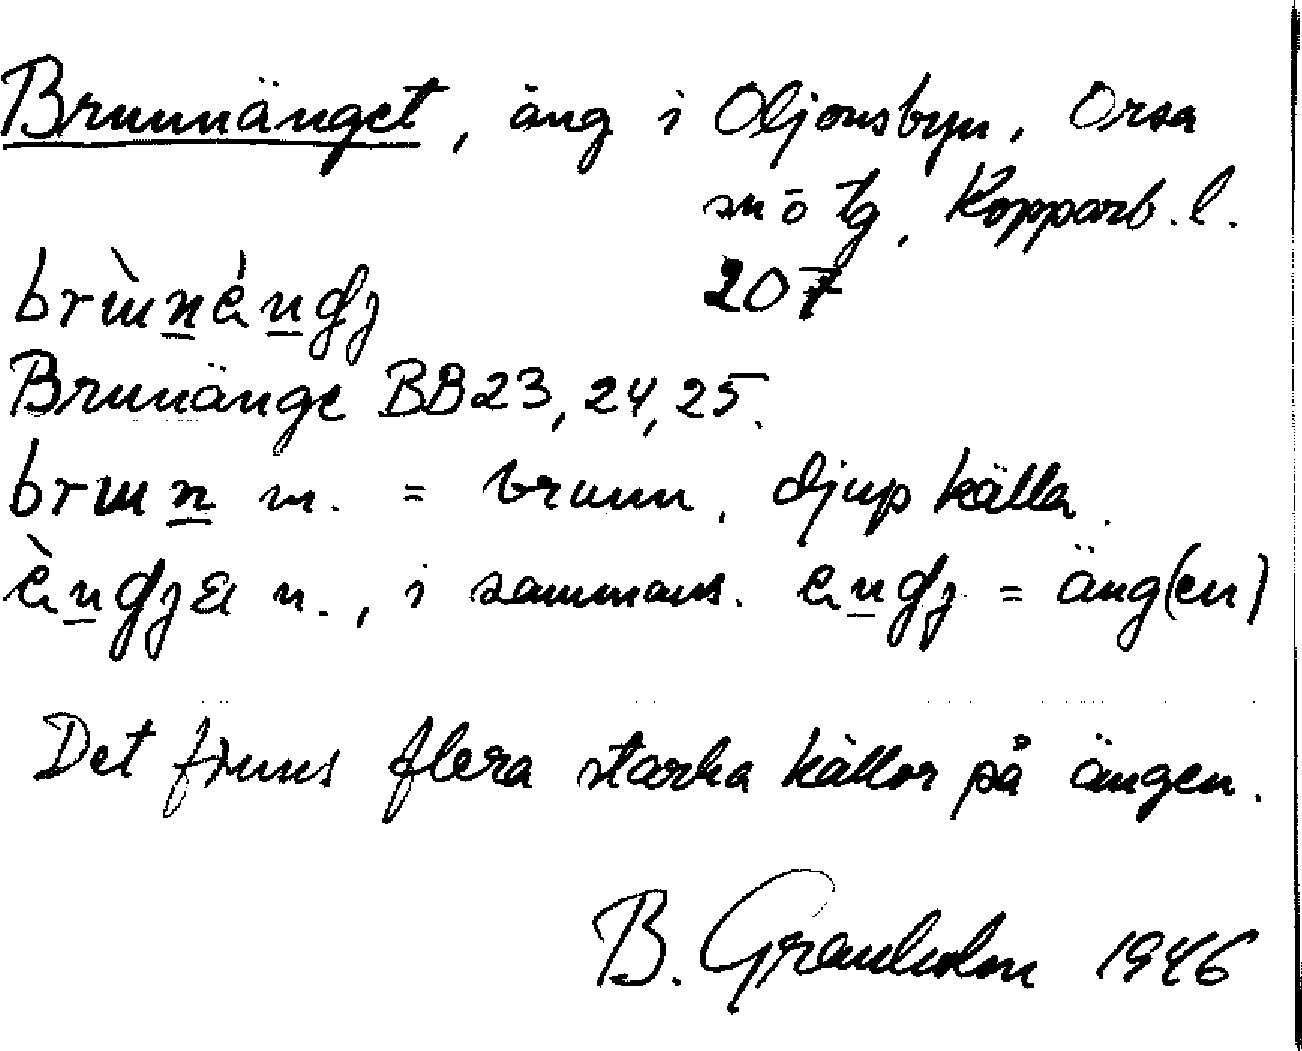 Brunnänget, äng i Oljonsbyn, Orsa
sn o tg, Kopparb. l.
207
Brunänge BB23, 24, 25.
m. = brunn, djup källa.
n., i sammans. = äng(en)
Det finns flera starka källor på ängen.
B. Granholm 1946